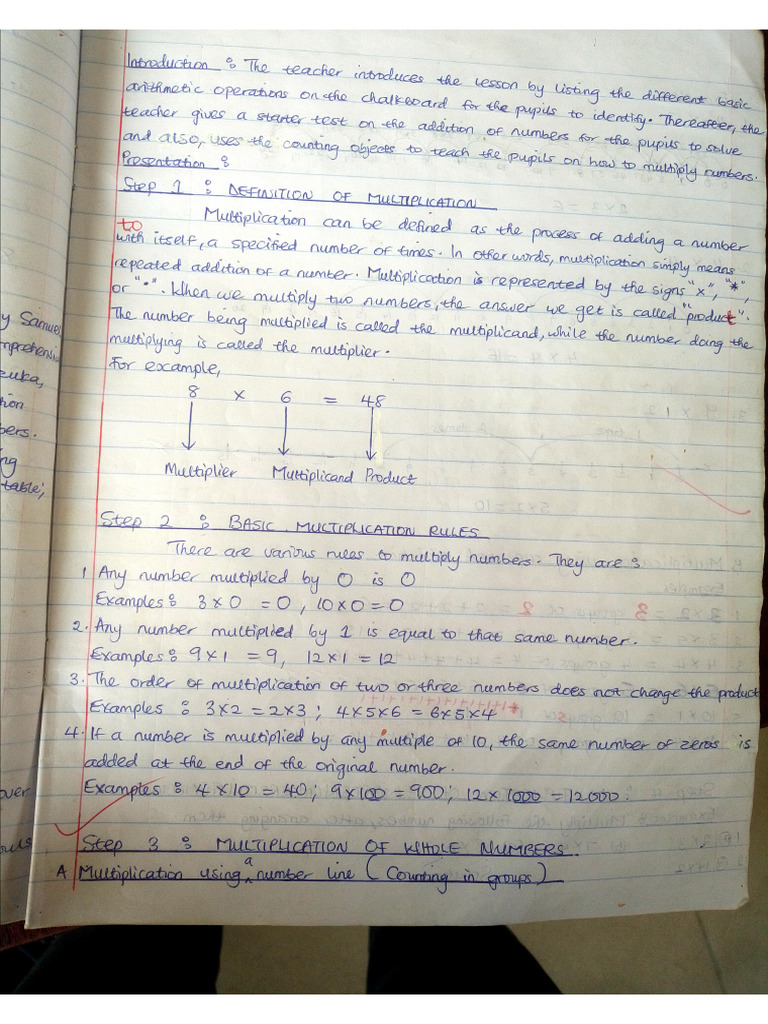 Introduction : The teacher introduces the lesson by listing the different basic
arithmetic operations on the chalkboard for the pupils to identify. Thereafter, the
teacher gives a starter test on the addition of numbers for the pupils to solve
and also, uses the counting objects to teach the pupils on how to multiply numbers.
Presentation :
Step 1 : DEFINITION OF MULTIPLICATION
Multiplication can be defined as the process of adding a number
to
with itself, a specified number of times. In other words, multiplication simply means
repeated addition of a number. Multiplication is represented by the signs "x", "*",
or "•". When we multiply two numbers, the answer we get is called "product".
The number being multiplied is called the multiplicand, while the number doing the
multiplying is called the multiplier.
For example,
8 x 6 = 48
Multiplier Multiplicand Product
Step 2 : BASIC MULTIPLICATION RULES
There are various rules to multiply numbers. They are :
1 Any number multiplied by 0 is 0
Examples : 3 x 0 = 0 , 10 x 0 = 0
2. Any number multiplied by 1 is equal to that same number.
Examples : 9 x 1 = 9, 12 x 1 = 12
3. The order of multiplication of two or three numbers does not change the product
Examples : 3 x 2 = 2 x 3 ; 4 x 5 x 6 = 6 x 5 x 4
4. If a number is multiplied by any multiple of 10, the same number of zeros is
added at the end of the original number.
Examples : 4 x 10 = 40; 9 x 100 = 900; 12 x 1000 = 12000.
Step 3 : MULTIPLICATION OF WHOLE NUMBERS.
A Multiplication using a number line (Counting in groups)
y Samuel
zuka,
tion
bers.
ng
table;
over